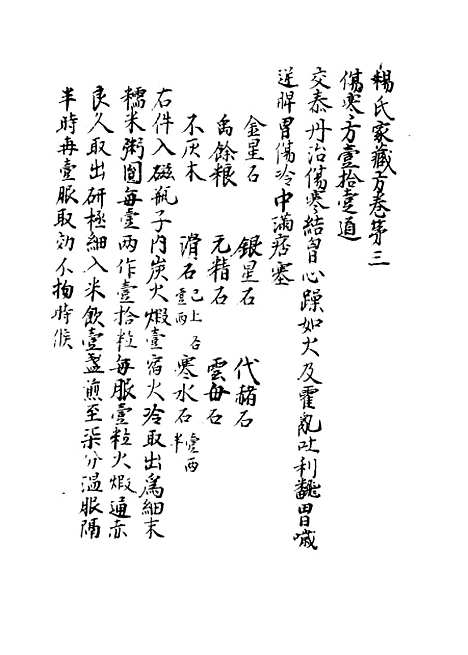 楊氏家藏方卷第三
傷寒方壹拾壹道
交泰丹治傷寒結胷心躁如火及霍亂吐利飜胃噦
逆脾胃傷冷中滿痞塞
金星石　銀星石　代赭石
禹餘粮　元精石　雲母石
不灰木　滑石已上各壹两　寒水石壹两半
右件入磁瓶子內炭火煅壹宿火冷取出爲細末
糯米粥圓每壹两作壹拾粒每服壹粒火煅通赤
良久取出研極細入米飲壹盞煎至柒分溫服隔
半時再壹服取効不拘時候